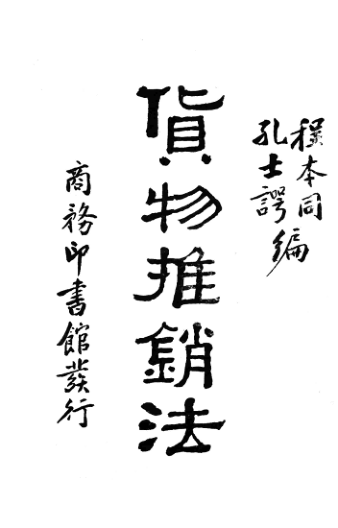 本同
孔士諤編
貨物推銷法
商務印書館發行